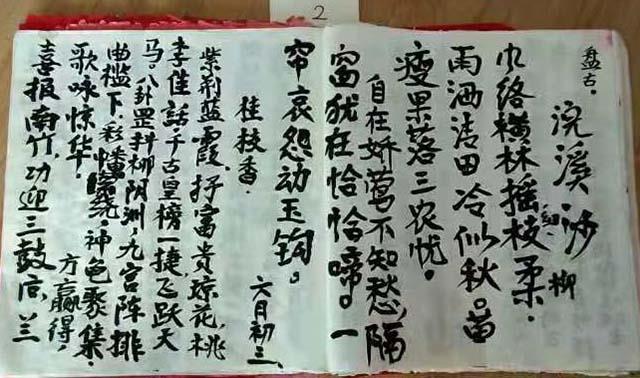 2
盘古.
浣溪沙 柳
巾络横林摇枝柔.
雨洒洼田冷似秋。苗
瘦果落三农忧。
自在娇莺不知愁，隔
窗犹在恰恰啼。一
帘哀怨动玉钩。
六月初三、
桂枝香.
紫荆蓝霞，抒富贵琼花，桃
李佳話，千古皇榜一捷，飞跃天
马，八卦罡斗柳阴洲，九宫阵排
曲槛下，彩幡绕，神色聚集，
歌咏惊华. 方赢得，
喜报南竹功迎三鼓，兰